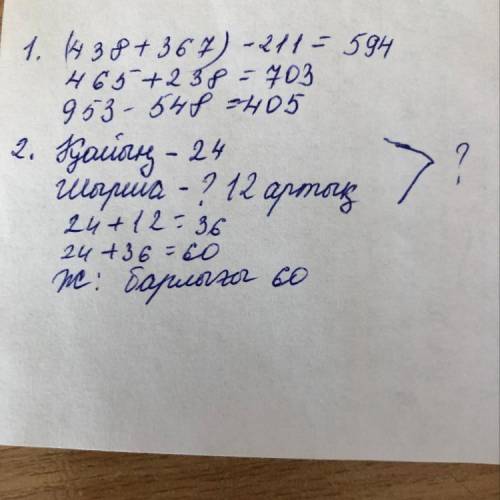 1. (438+367) - 211 = 594
465 + 238 = 703
953 - 548 = 405
2. Қайың - 24
Шырша - ? 12 артық > ?
24 + 12 = 36
24 + 36 = 60
Ж: барлығы 60